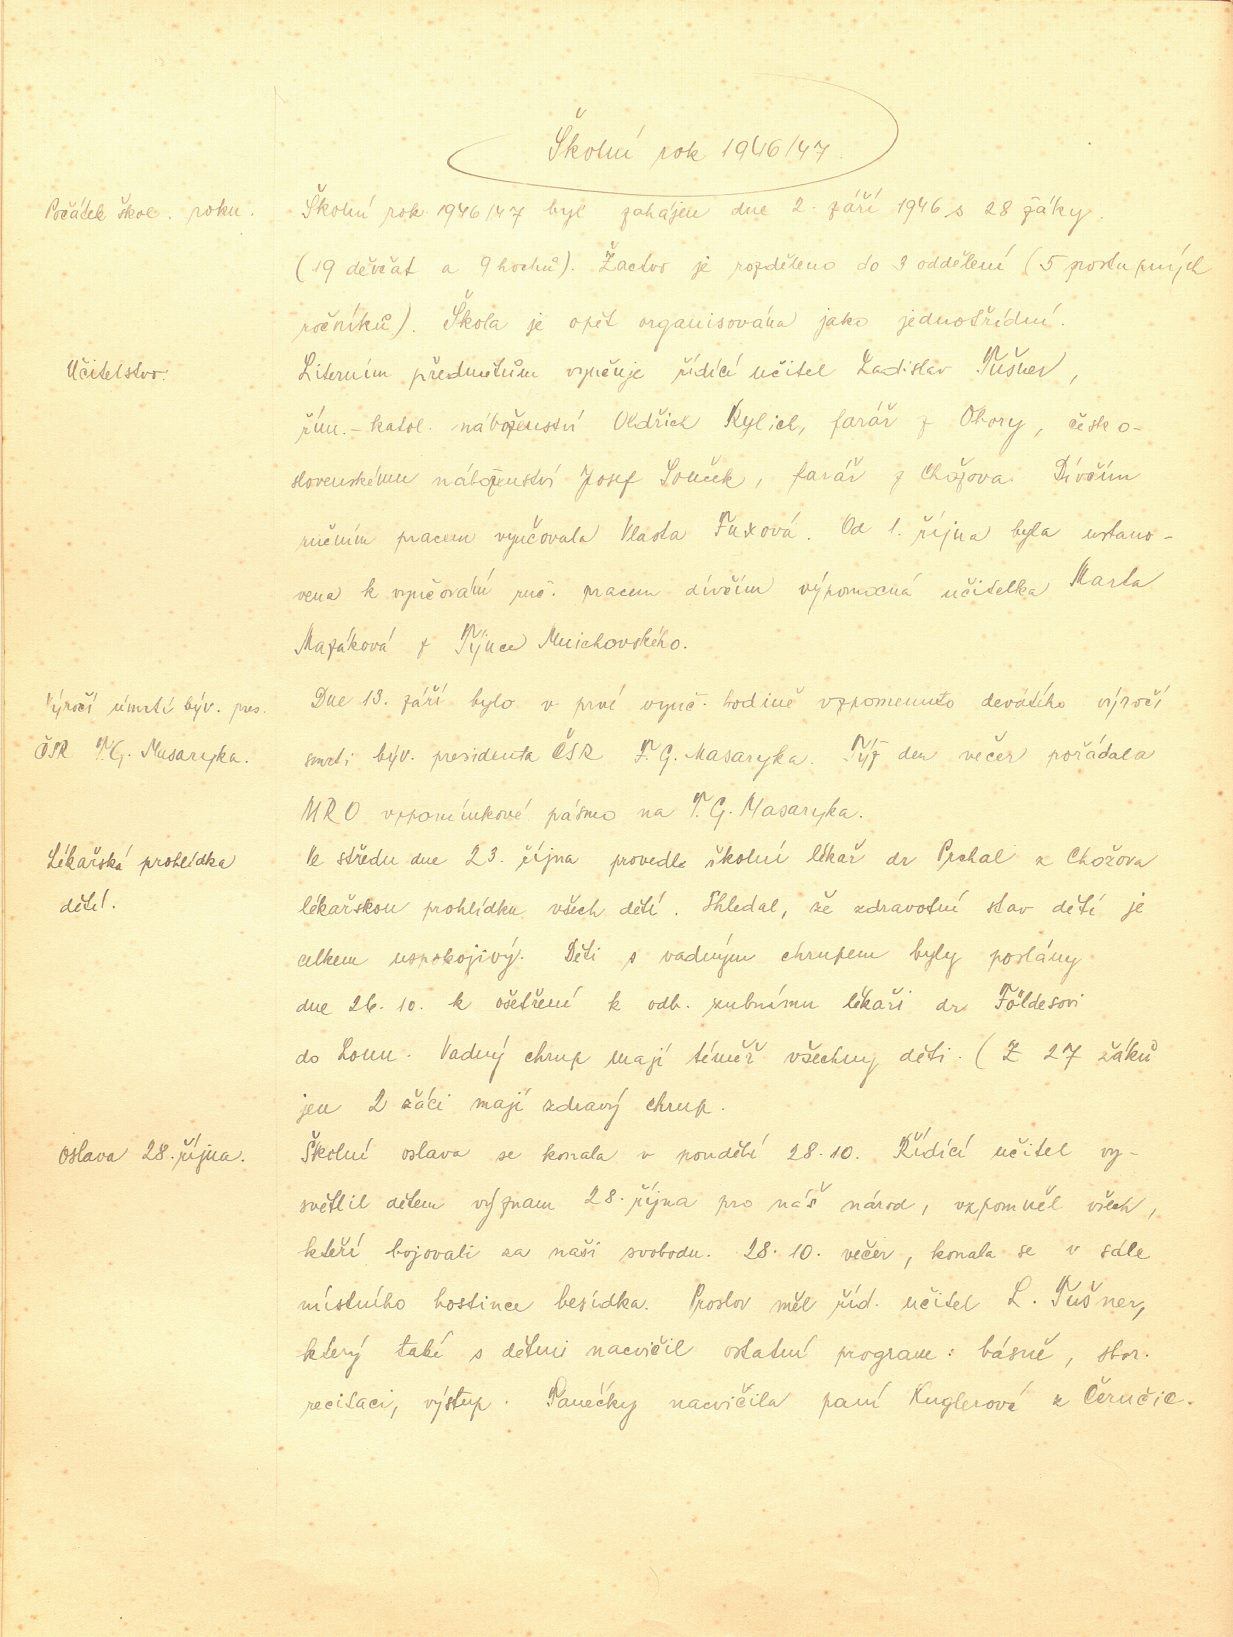 Školní rok 1946/47
Počátek škol. roku.
Školní rok 1946/47 byl zahájen dne 2. září 1946 s 28 žáky.
(19 děvčat a 9 hochů). Žactvo je rozděleno do 3 oddělení (5 postupných
ročníků). Škola je opět organisována jako jednotřídní.
Učitelstvo.
Literním předmětům vyučuje řídící učitel Ladislav Tušner,
řím.-katol. náboženství Oldřich Kylich, farář z Obory, česko-
slovenskému náboženství Josef Souček, farář z Chožova. Dívčím
ručním pracem vyučovala Vlasta Fuxová. Od 1. října byla ustano-
vena k vyučování ruč. pracem dívčím výpomocná učitelka Marta
Mazáková z Týnce Mnichovského.
Výročí úmrtí býv. pres.
ČSR T.G. Masaryka.
Dne 13. září bylo v prvé vyuč. hodině vzpomenuto devátého výročí
smrti býv. presidenta ČSR T.G. Masaryka. Týž den večer pořádala
MRO vzpomínkové pásmo na T.G. Masaryka.
Lékařská prohlídka
dětí.
Ve středu dne 23. října provedl školní lékař dr Prchal z Chožova
lékařskou prohlídku všech dětí. Shledal, že zdravotní stav dětí je
celkem uspokojivý. Děti s vadným chrupem byly poslány
dne 26. 10. k ošetření k odb. zubnímu lékaři dr Földesovi
do Loun. Vadný chrup mají téměř všechny děti. (Z 27 žáků
jen 2 žáci mají zdravý chrup.
Oslava 28. října.
Školní oslava se konala v pondělí 28. 10. Řídící učitel vy-
světlil dětem význam 28. října pro náš národ, vzpomněl všech,
kteří bojovali za naši svobodu. 28. 10. večer, konala se v sále
místního hostince besídka. Proslov měl říd. učitel L. Tušner,
který také s dětmi nacvičil ostatní program: básně, sbor.
recitaci, výstup. Tanečky nacvičila paní Kuglerová z Černčic.